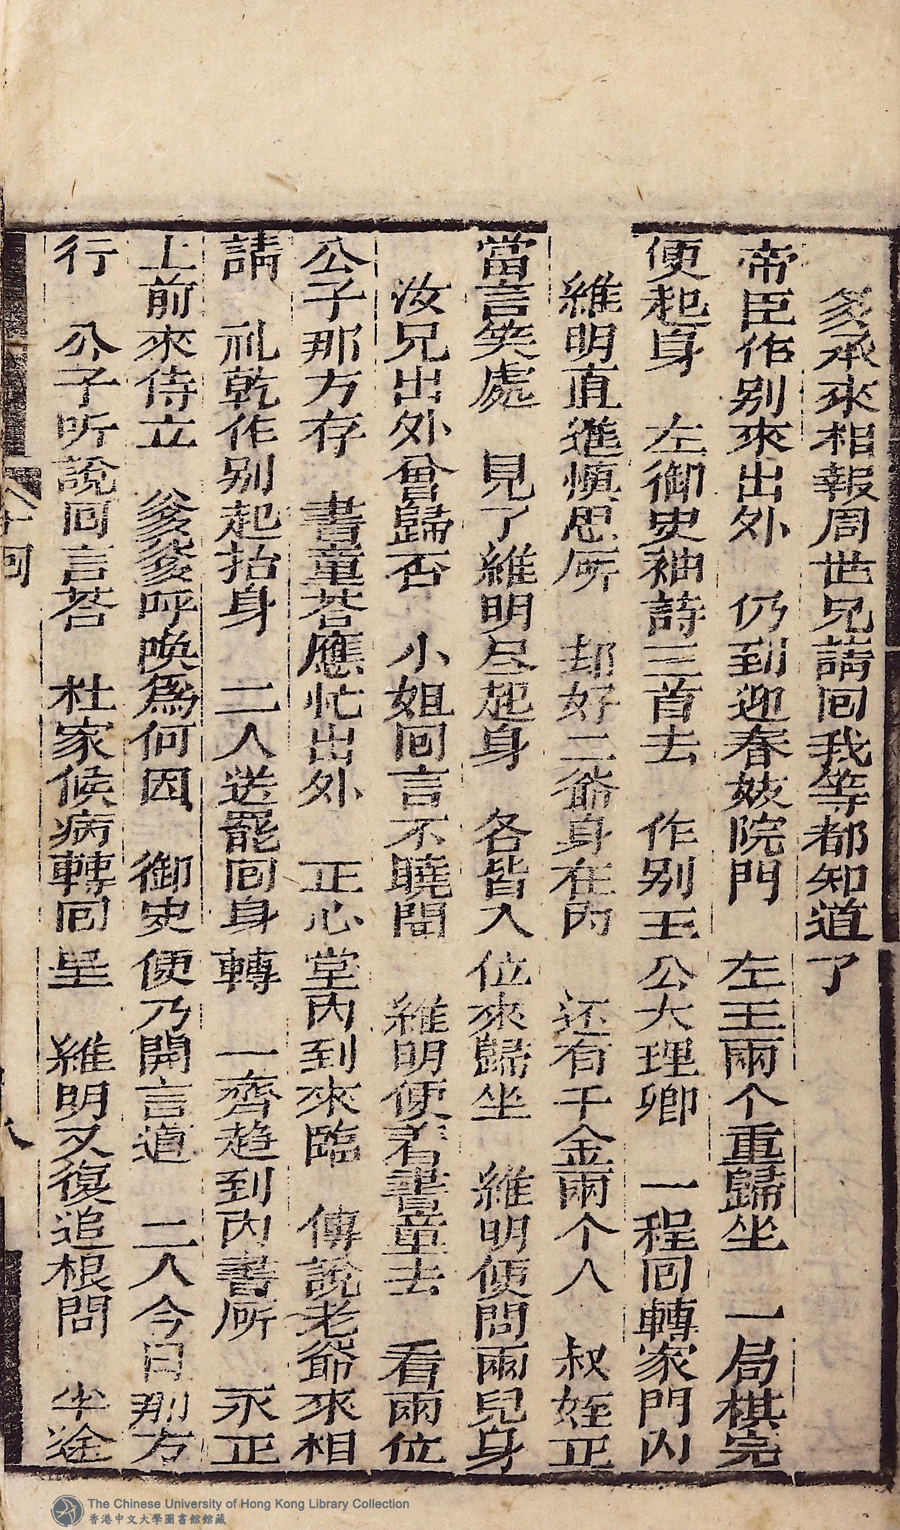 爹承來相報周世兄請囬我等都知道了
帝臣作别來出外　仍到迎春妓院門　左王兩个重歸坐　一局棋完
便起身　左御史袖詩三首去　作别王公大理卿　一程囬轉家門内
維明直進慎思所　却好二爺身在内　还有千金兩个人　叔姪正
當言笑處　見了維明尽起身　各皆入位來歸坐　維明便問兩兒身
汝兄出外曾歸否　小姐囬言不曉聞　維明便着書童去　看兩位
公子那方存　書童荅應忙出外　正心堂内到來臨　傳說老爺來相
請　礼乾作别起抬身　二人送罷囬身轉　一齊趋到内書所　永正
上前來侍立　爹爹呼喚爲何因　御史便乃開言道　二人今日那方
行　公子听說囬言荅　杜家候病轉囬呈　維明又復追根問　半途
十囬
八
The Chinese University of Hong Kong Library Collection
香港中文大學圖書館館藏